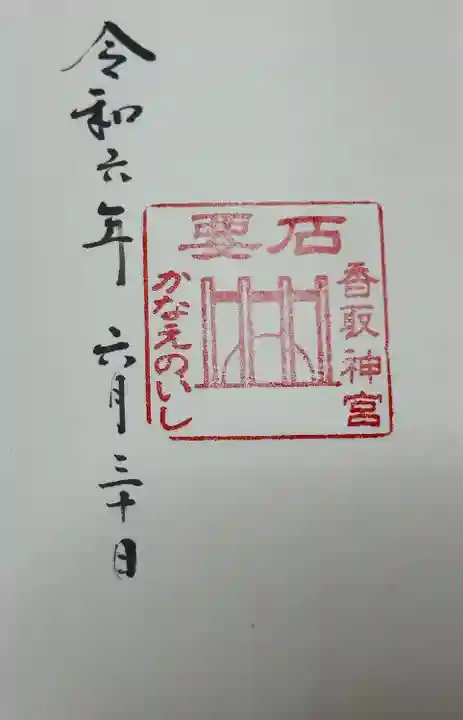 令和六年 六月三十日
石要
香取神宮
かなえのいし